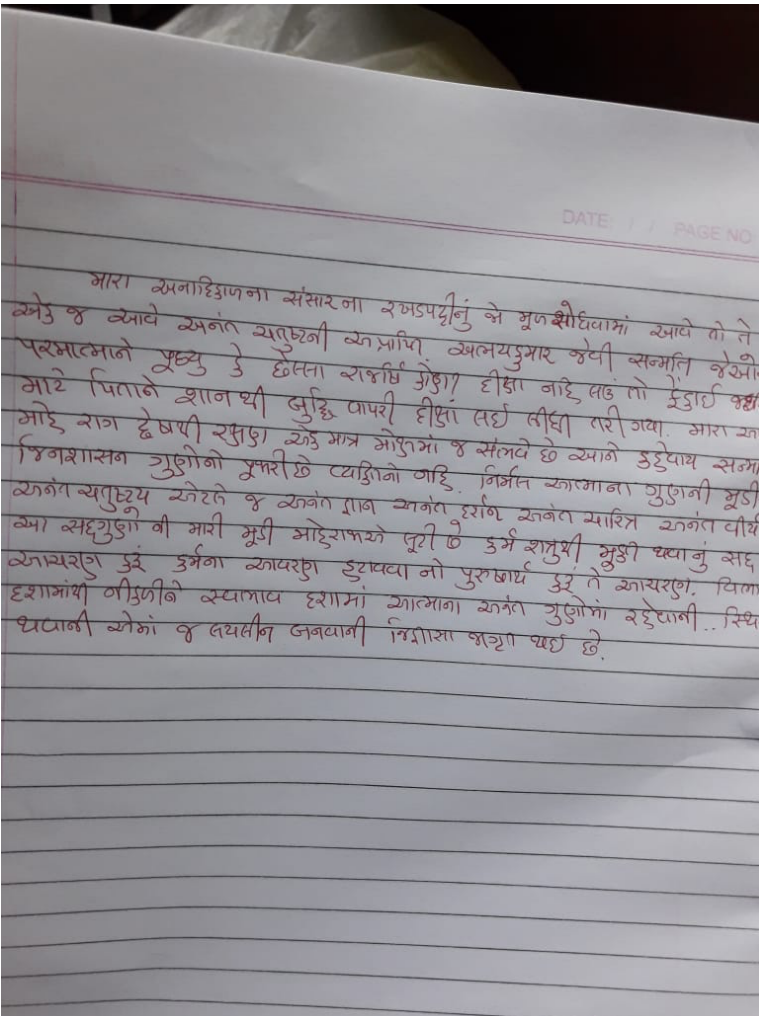 DATE: / / PAGE NO
મારા અનાદિકાળના સંસારના રખડપટ્ટીનું જો મૂળ શોધવામાં આવે તો તે
એક જ આવે અનંત ચતુષ્ટની અપ્રાપ્તિ. અભયકુમાર જેવી સન્મતિ જેઓ
પરમાત્માને પૂછ્યુ કે છેલ્લા રાજર્ષિ કોણ? દીક્ષા નહિ લઉં તો ફેંકાઈ જઈશ
માટે પિતાને શાનથી બુદ્ધિ વાપરી દીક્ષા લઈ લીધી તરી ગયા. મારા આ
માટે રાગ દ્વેષથી રક્ષણ એક માત્ર મોક્ષમાં જ સંભવે છે આને કહેવાય સન્મ
જિનશાસન ગુણોનો પૂજારી છે વ્યક્તિનો નહિ. નિર્મલ આત્માના ગુણની મૂડી
અનંત ચતુષ્ટય એટલે જ અનંત જ્ઞાન અનંત દર્શન અનંત ચારિત્ર અનંત વીર્ય
આ સદ્દગુણોની મારી મૂડી મોહરાજાએ લૂટી છે કર્મ શત્રુથી મુક્ત થવાનું સદ્
આચરણ કરું કર્મના આવરણ હટાવવાનો પુરુષાર્થ કરું તે આચરણ. વિભા
દશામાંથી નીકળીને સ્વભાવ દશામાં આત્માના અનંત ગુણોમાં રહેવાની.. સ્થિ
થવાની એમાં જ લયલીન બનવાની જિજ્ઞાસા જાગૃત થઈ છે.